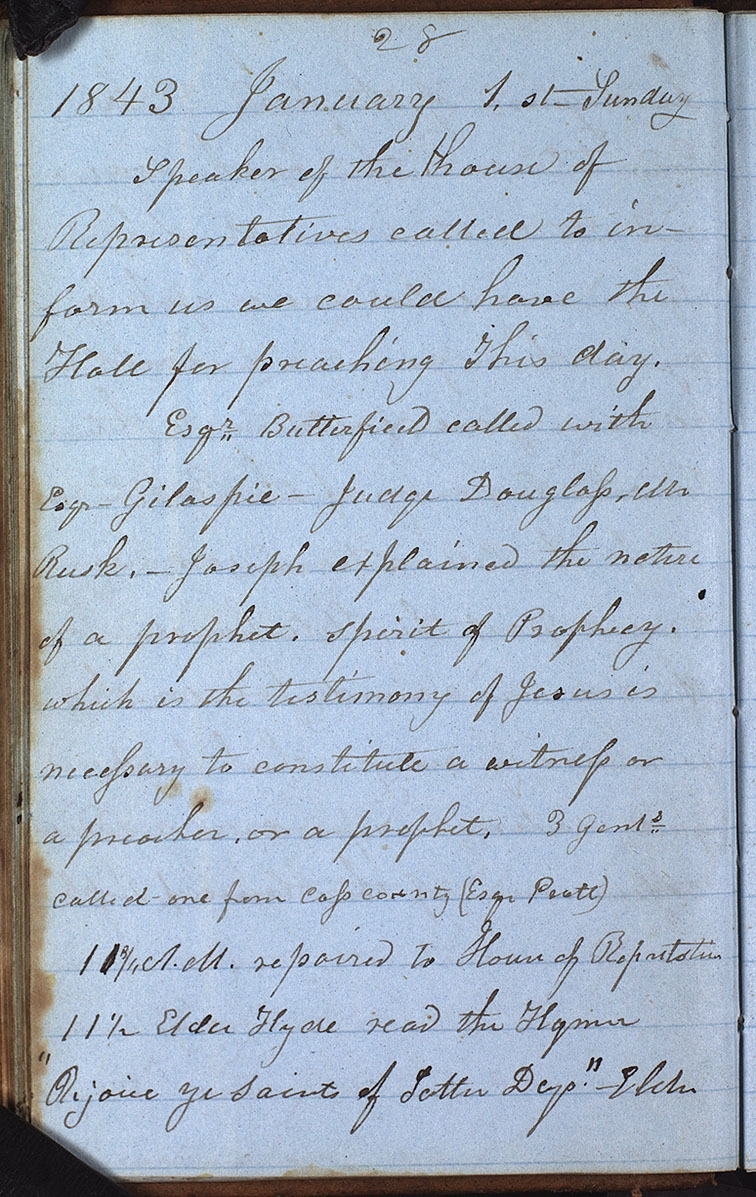 28
1843 January 1. st– Sunday
Speaker of the house of
Representatives called to in–
form us we could have the
Hall for preaching This day.
Esqr. Butterfield called with
Esqr– Gilaspie – Judge Douglass, Mr
Rusk. – Joseph explained the nature
of a prophet. spirit of Prophecy.
which is the testimony of Jesus is
necessary to constitute a witness or
a preacher. or a prophet. 3 Gents
called– one from Cass county (Esqr Pratt)
A.M. repaired to House of Reprstatives
11½ Elder Hyde read the Hymn
"Rejoice ye Saints of Latter Days." – Elder